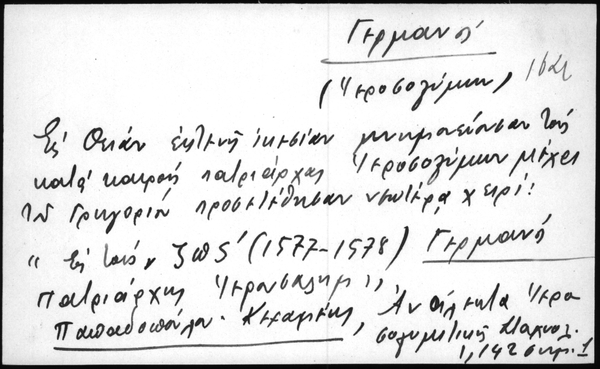 Γερμανός
(Ἱεροσολύμων)
Εἰς θείαν ἐκτενῆ ἱκεσίαν μνημονεύουσαν τοὺς
κατὰ καιροὺς πατριάρχας Ἱεροσολύμων μέχρι
τοῦ Γρηγορίου προσετέθησαν νεωτέρᾳ χειρί:
" Εἰς τοὺς ͵ζπς´ (1577-1578) Γερμανός
πατριάρχης Ἱερουσαλήμ",
Παπαδοπούλου-Κεραμέως, Ἀνάλεκτα Ἱερο
σολυμιτικῆς Σταχυολ.
1, 142 σημ. 1